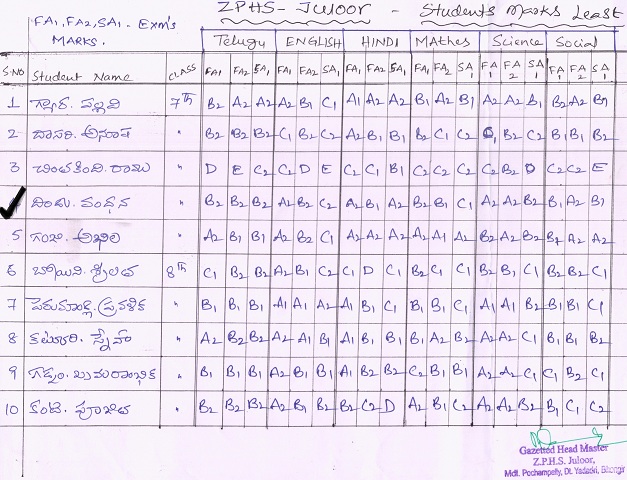 ZPHS - JULOOR - Students Marks Least
FA1, FA2, SA1 - EXM'S
MARKS.
Telugu ENGLISH HINDI Mathes Science Social
S.NO Student Name CLASS FA1 FA2 SA1 FA1 FA2 SA1 FA1 FA2 SA1 FA1 FA2 SA1 FA1 FA2 SA1 FA1 FA2 SA1
1 7th B2 A2 A2 A2 B1 C1 A1 A2 A2 B1 A2 B1 A2 A2 B1 B2 A2 B1
2 దాసరి. అనూష " B2 B2 B2 C1 B2 C2 A2 B1 B1 B2 C1 C2 C1 B2 C2 B1 B1 B2
3 చింతకింది. రాము " D E C2 C2 D E C2 C1 B1 C2 C2 C2 C2 B2 D C2 C2 E
దిండు. వందన " B2 B2 B2 A2 B2 C2 A2 B1 A2 B2 B1 C1 A2 A2 B2 B1 A2 B1
5 గంజి. అఖిల " A2 B1 B1 A2 B2 C1 A2 A2 A2 A2 A1 A2 B2 A2 B2 B1 A2 A2
6 8th C1 B2 B2 A2 B1 C2 C1 D C1 B2 C1 C1 B2 B2 C1 B2 B2 C1
7 పెరుమాండ్ల. ప్రవళిక " B1 B1 B1 A1 A1 A2 A2 B1 C1 B1 B1 C1 A1 A1 B2 B1 B1 C1
8 కటూరి. స్నేహ " A2 B2 B2 A2 A1 B1 A1 B1 B1 B1 A2 B2 A2 A2 C1 B1 B1 B2
9 గడ్డం. " B1 B1 B1 A2 B1 B1 A1 B2 B2 C2 B1 B1 A2 A2 C1 C1 B2 C1
10 కంటె. పూజిత " B2 B2 B2 A2 B1 B2 B2 C2 D A2 B1 C2 A2 A2 B2 B1 C1 C2
Gazetted Head Master
Z.P.H.S. Juloor,
Mdl. Pochampally, Dt. Yadadri, Bhongir